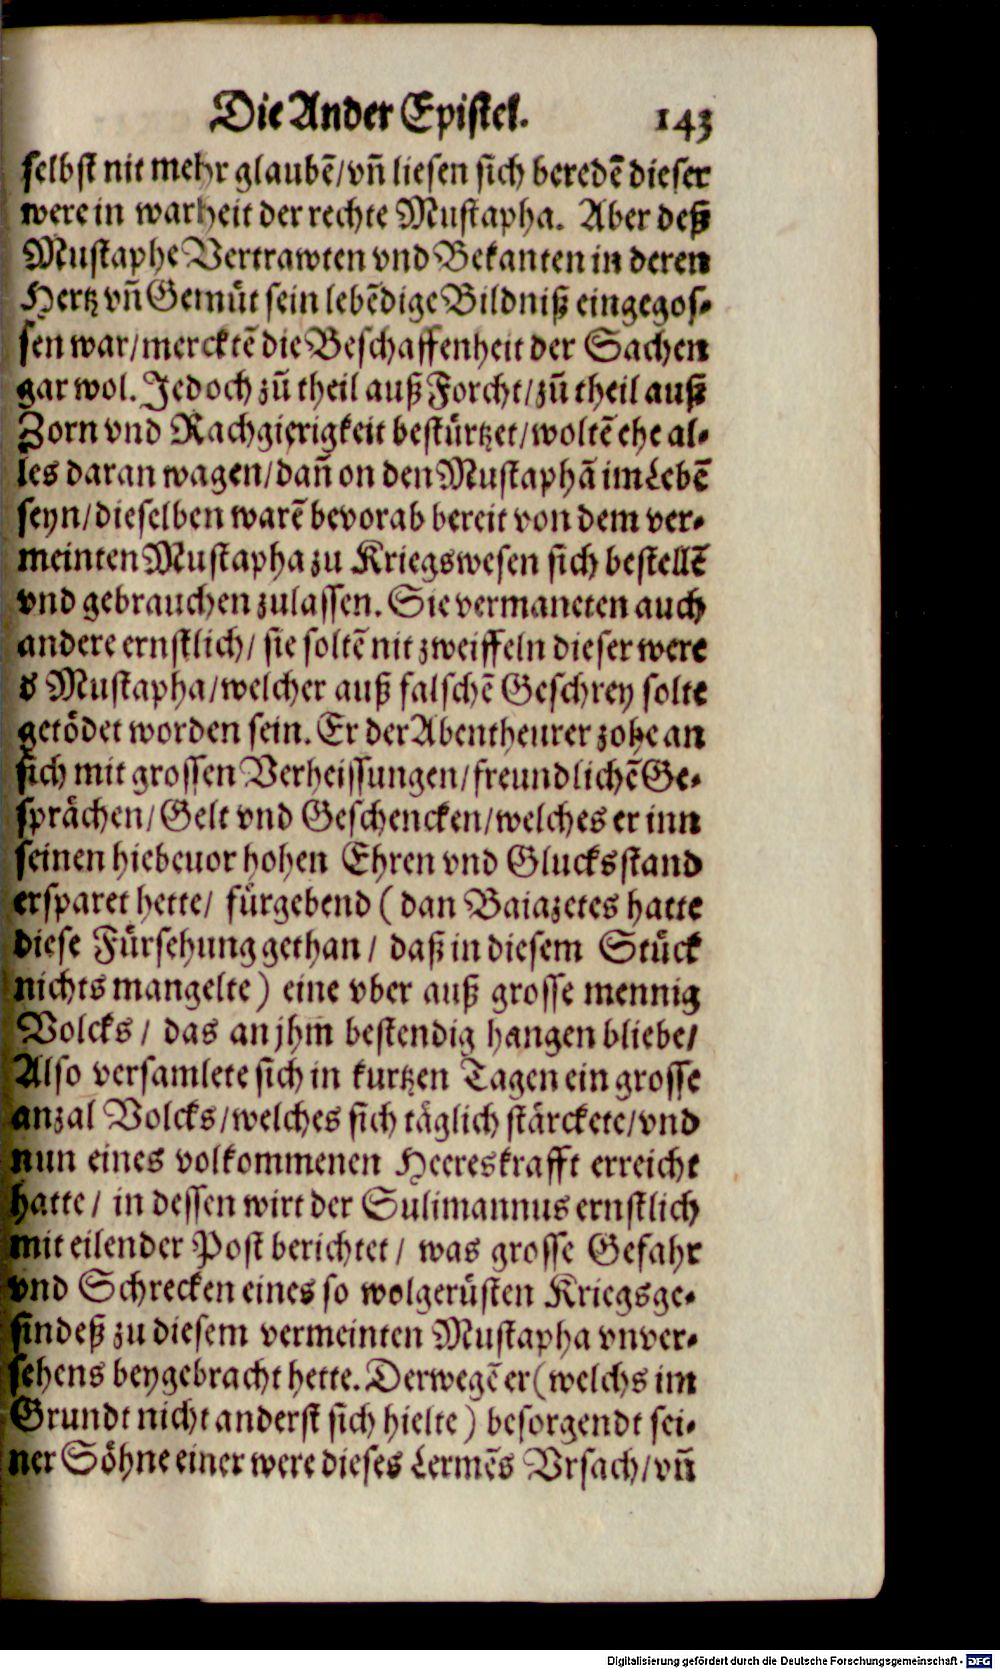 Die Ander Epistel. 143
selbst nit mehr glaubẽ/vñ liesen sich beredẽ dieser
were in warheit der rechte Mustapha. Aber deß
Mustaphe Vertrawten vnd Bekanten in deren
Hertz vñ Gemüt sein lebẽdige Bildniß eingegos-
sen war/mercktẽ die Beschaffenheit der Sachen
gar wol. Jedoch zũ theil auß Forcht/zũ theil auß
Zorn vnd Rachgierigkeit bestürtzet/woltẽ ehe al-
les daran wagen/dañ on den Mustaphã im Lebẽ
seyn/dieselben warẽ bevorab bereit von dem ver-
meinten Mustapha zu Kriegswesen sich bestellẽ
vnd gebrauchen zulassen. Sie vermaneten auch
andere ernstlich/ sie soltẽ nit zweiffeln dieser were
d Mustapha/welcher auß falschẽ Geschrey solte
getödet worden sein. Er der Abentheurer zohe an
sich mit grossen Verheissungen/freundlichẽ Ge-
sprächen/Gelt vnd Geschencken/welches er inn
seinen hiebeuor hohen Ehren vnd Glucksstand
ersparet hette/ fürgebend (dan Baiazetes hatte
diese Fürsehung gethan/ daß in diesem Stück
nichts mangelte) eine vber auß grosse mennig
Volcks/ das an jhm̃ bestendig hangen bliebe/
Also versamlete sich in kurtzen Tagen ein grosse
anzal Volcks/welches sich täglich stärckete/vnd
nun eines volkommenen Heereskrafft erreicht
hatte/ in dessen wirt der Sulimannus ernstlich
mit eilender Post berichtet/ was grosse Gefahr
vnd Schrecken eines so wolgerüsten Kriegsge-
sindeß zu diesem vermeinten Mustapha vnver-
sehens beygebracht hette. Derwegẽ er (welchs im
Grundt nicht anderst sich hielte) besorgendt sei-
ner Söhne einer were dieses Lermẽs Vrsach/vñ
Digitalisierung gefördert durch die Deutsche Forschungsgemeinschaft - DFG